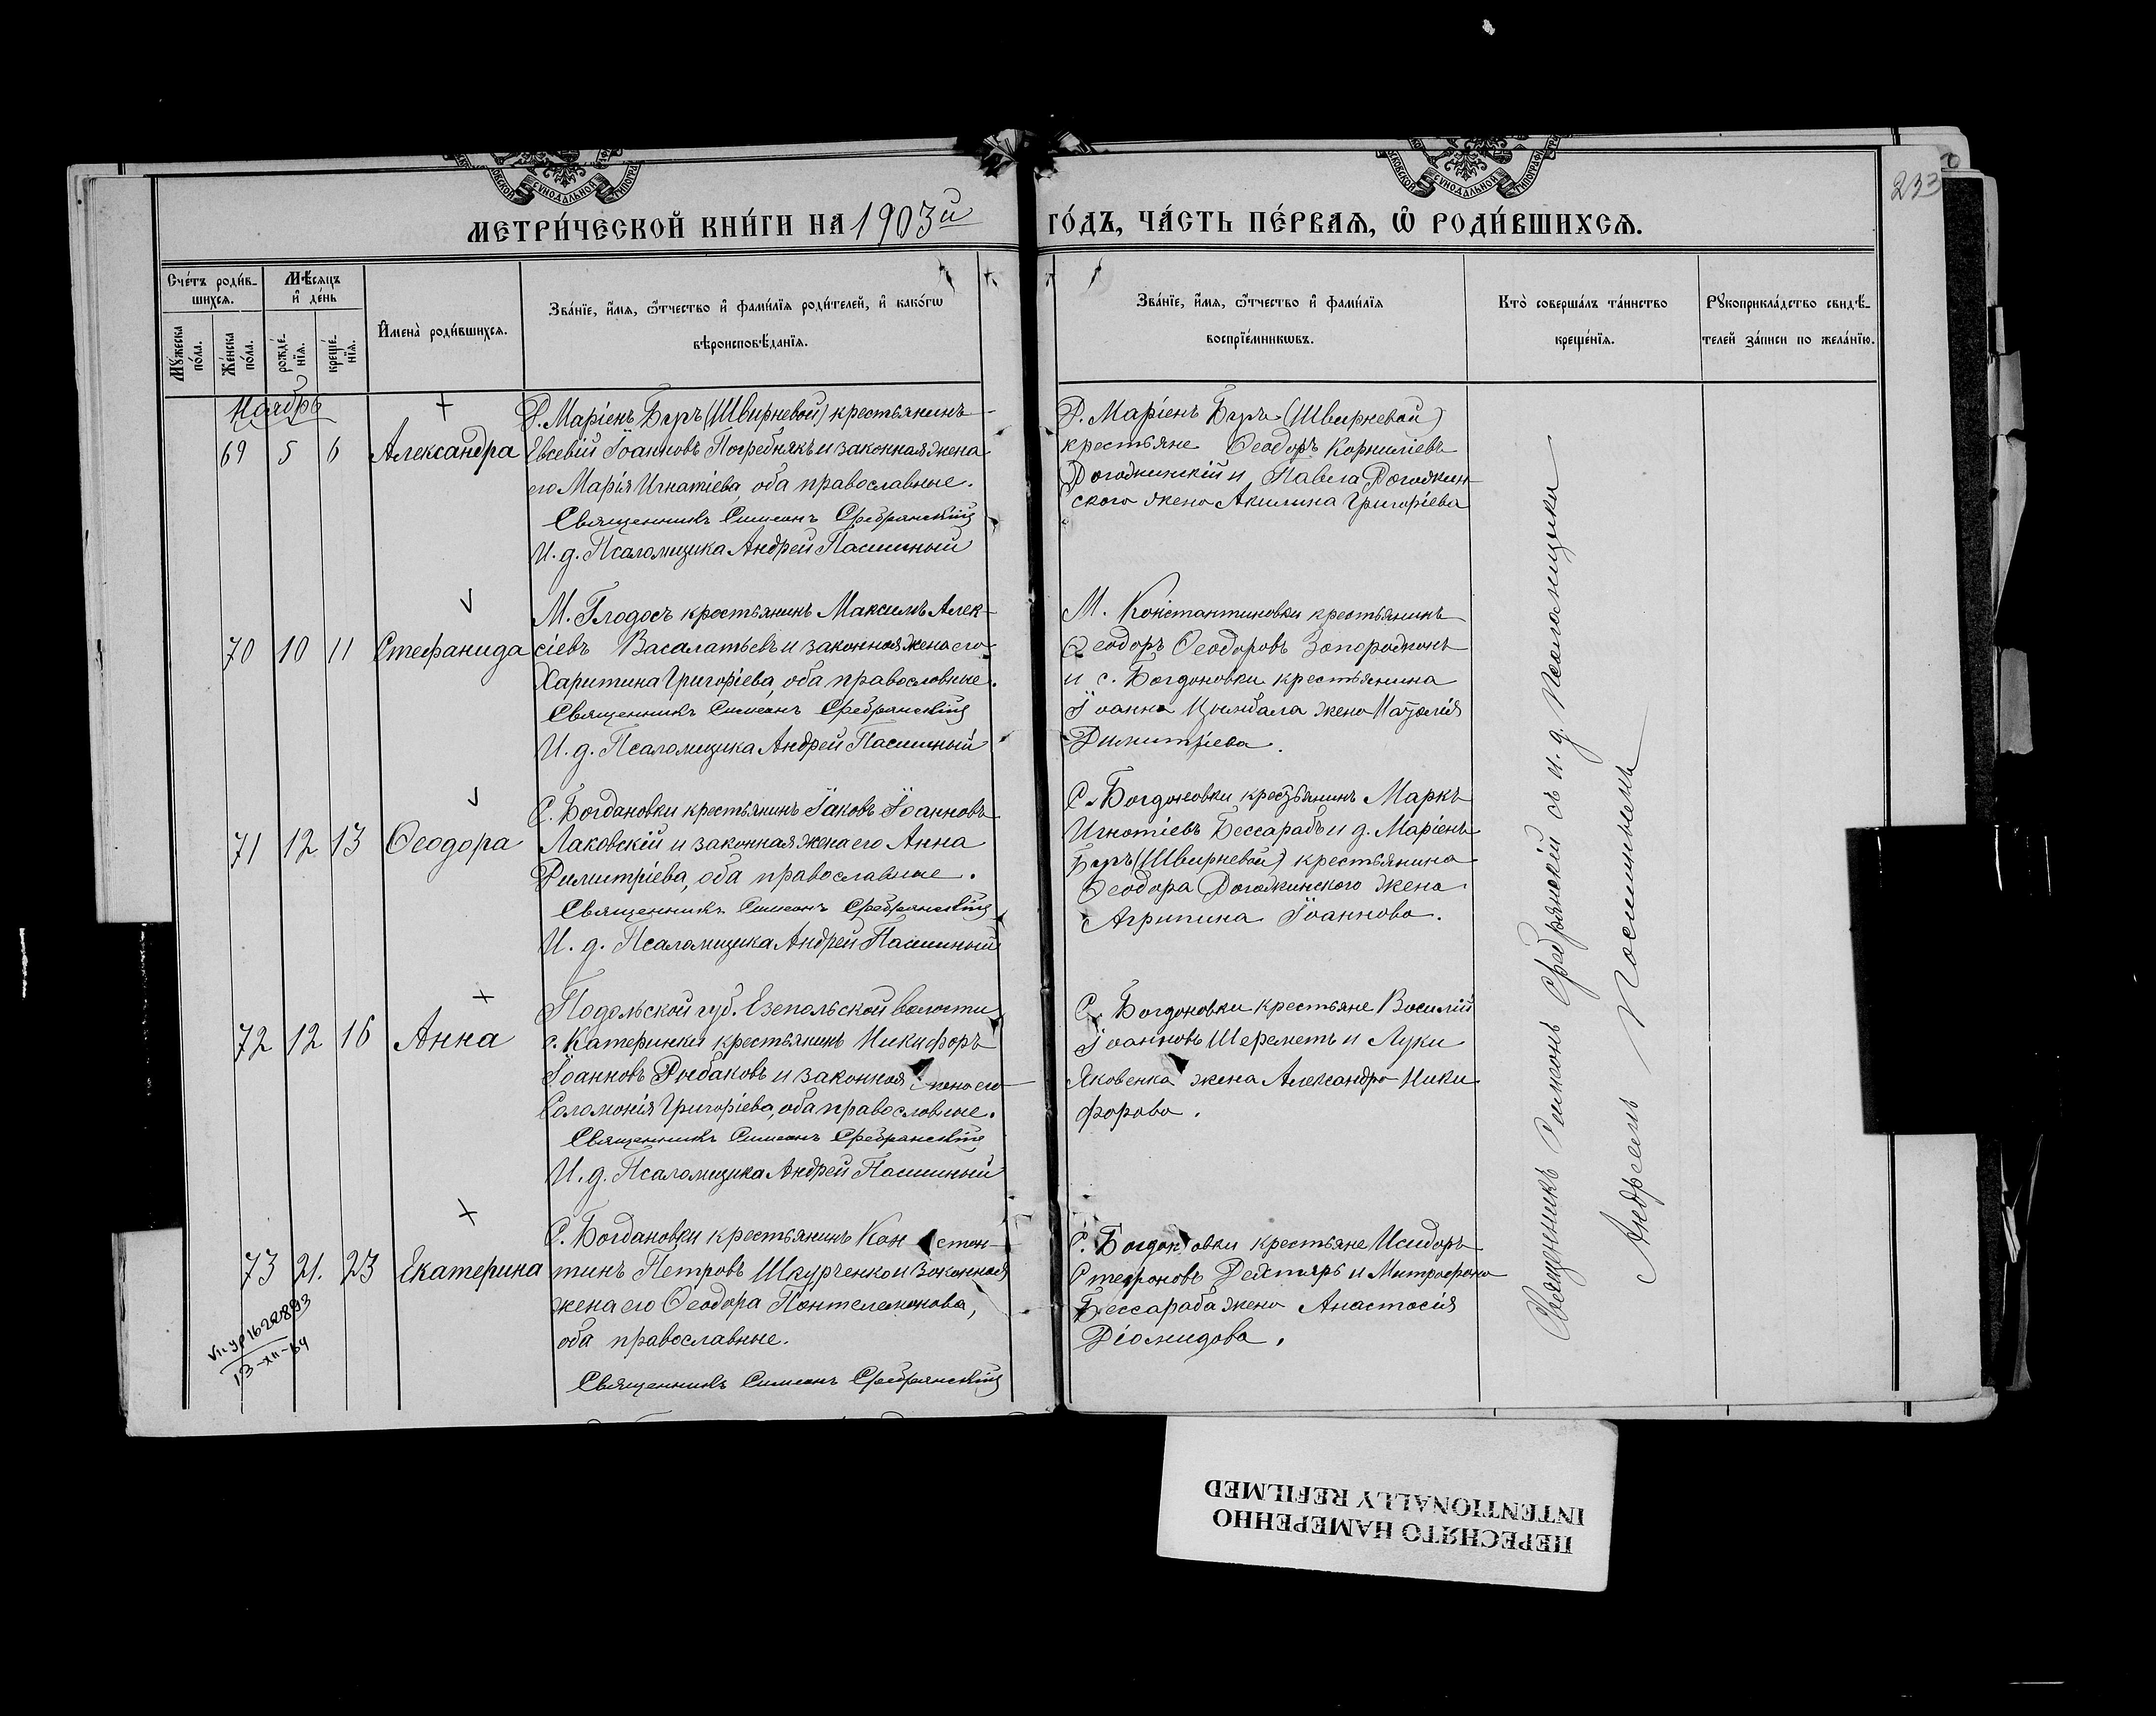 233
МЕТРИ́ЧЕСКОЙ КНИ́ГИ НА 1903й ГО́ДЪ, ЧА́СТЬ ПЕ́РВАѦ, Ѡ РОДИ́ВШИХСѦ.
Сче́тъ роди́в-
шихся.
Мѣсяцъ
и де́нь
Му́жеска
по́ла.
Же́нска
по́ла.
рожде́-
нія.
креще́-
нія.
Имена̀ роди́вшихся.
Зва́ніе, и́мя, ѻ́тчество и фами́лія роди́телей, и како́гѡ
вѣроисповѣ́данія.
Зва́ніе, и́мя, ѻ́тчество и фами́лія
воспріе́мникѡвъ.
Кто̀ соверша́лъ та́инство
креще́нія.
Рꙋкоприкла́дство свидѣ́-
телей за́писи по жела́нію.
Ноябрь
69 5 6 Александра
Д. Маріенъ Буръ (Швирневой) крестьянинъ
Евсевій Іоанновъ Погребнякъ и законная жена
его Марія Игнатіева, оба православные.
Священникъ Симеонъ Сребрянскій
И. д. Псаломщика Андрей Пасишный
Д. Маріенъ Буръ (Швирневой)
крестьяне Ѳеодоръ Корниліевъ
Догожинскій и Павела Догожин-
ского жена Акилина Григоріева
70 10 11 Стефанида
М. Глодосъ крестьянинъ Максимъ Алек-
сіевъ Васалатьевъ и законная жена его
Харитина Григоріева, оба православные.
Священникъ Симеонъ Сребрянскій
И. д. Псаломщика Андрей Пасишный
М. Константиновки крестьянинъ
Ѳеодоръ Ѳеодоровъ Запорожанъ
и с. Богдановки крестьянина
Іоанна Цымбала жена Наталія
Димитріева.
71 12 13 Ѳеодора
С. Богдановки крестьянинъ Іаковъ Іоанновъ
Лаковскій и законная жена его Анна
Димитріева, оба православные.
Священникъ Симеонъ Сребрянскій
И. д. Псаломщика Андрей Пасишный
С. Богдановки крестьянинъ Маркъ
Игнатіевъ Бессарабъ и д. Маріенъ
Буръ (Швирневой) крестьянина
Ѳеодора Догожинского жена
Агрипина Іоаннова.
72 12 16 Анна
Подольской губ. Езепольской волости
с. Катеринки крестьянинъ Никифоръ
Іоанновъ Рыбаковъ и законная жена его
Соломонія Григоріева, оба православные.
Священникъ Симеонъ Сребрянскій
И. д. Псаломщика Андрей Пасишный
С. Богдановки крестьяне Василій
Іоанновъ Шереметъ и Луки
Яковенка жена Александра Ники-
форова.
73 21. 23 Екатерина
С. Богдановки крестьянинъ Констан-
тинъ Петровъ Шкурченко и законная
жена его Ѳеодора Пантелемонова,
оба православные.
Священникъ Симеонъ Сребрянскій
С. Богдановки крестьяне Исидоръ
Стефановъ Дехтяръ и Митрофана
Бессараба жена Анастасія
Діомидова.
Священникъ Симеонъ Сребрянскій съ и. д. Псаломщика
Андреемъ Пасишнымъ
ПЕРЕСНЯТО НАМЕРЕННО
INTENTIONALLY REFILMED